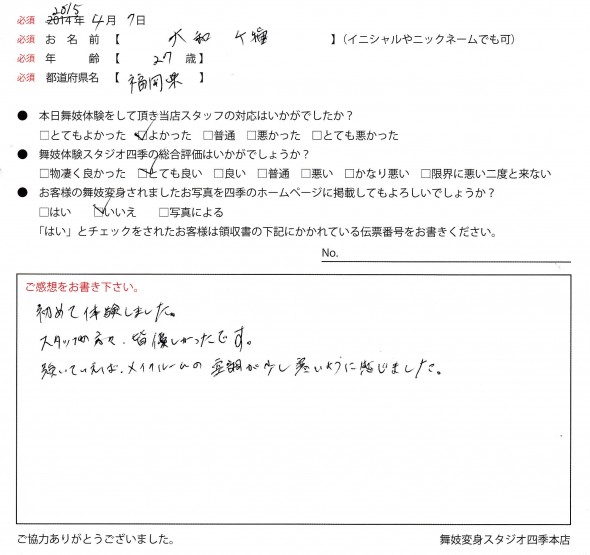 2015
必須 2014年 4月 7日
必須 お 名 前 【 大和 】(イニシャルやニックネームでも可)
必須 年 齢 【 27 歳】
必須 都道府県名 【 福岡県 】
● 本日舞妓体験をして頂き当店スタッフの対応はいかがでしたか?
□とてもよかった ☑よかった □普通 □悪かった □とても悪かった
● 舞妓体験スタジオ四季の総合評価はいかがでしょうか?
□物凄く良かった ☑とても良い □良い □普通 □悪い □かなり悪い □限界に悪い二度と来ない
● お客様の舞妓変身されましたお写真を四季のホームページに掲載してもよろしいでしょうか?
□はい ☑いいえ □写真による
「はい」とチェックをされたお客様は領収書の下記にかかれている伝票番号をお書きください。
No.
ご感想をお書き下さい。
初めて体験しました。
スタッフの方々、皆優しかったです。
強いていえば、メイクルームの空調が少し寒いように感じました。
ご協力ありがとうございました。 舞妓変身スタジオ四季本店